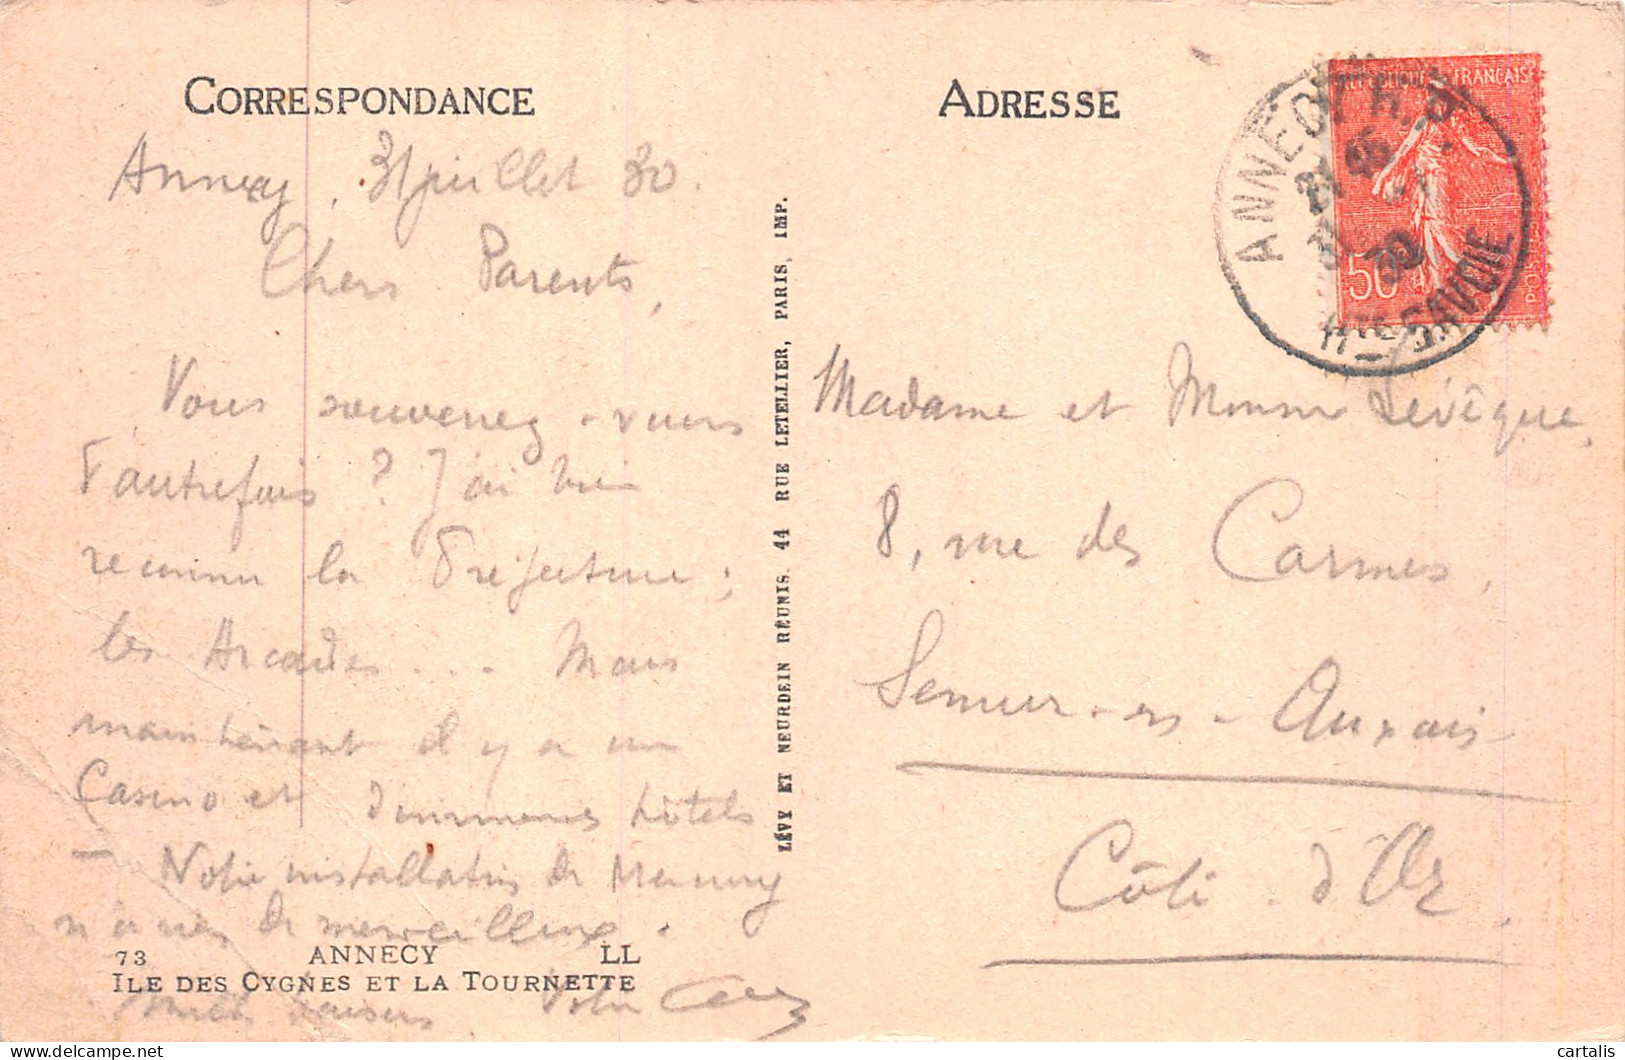 CORRESPONDANCE
Annecy, 31 juillet 30.
Chers Parents,
Vous souvenez-vous
d'autrefois ? J'ai bien
reconnu la Préfecture ;
les Arcades... Mais
maintenant il y a un
Casino et d'immenses hôtels
– Notre installation de
n'a rien de merveilleux.
73 ANNECY LL
ILE DES CYGNES ET LA TOURNETTE
baisers Votre
LÉVY ET NEURDEIN RÉUNIS. 44 RUE LETELLIER, PARIS, IMP.
ADRESSE
RÉPUBLIQUE FRANÇAISE
50
ANNECY R.P
30
HTE SAVOIE
Madame et Monsieur Lévêque,
8, rue des Carmes,
Semur-en-Auxois
Côte d'Or.
cartalis